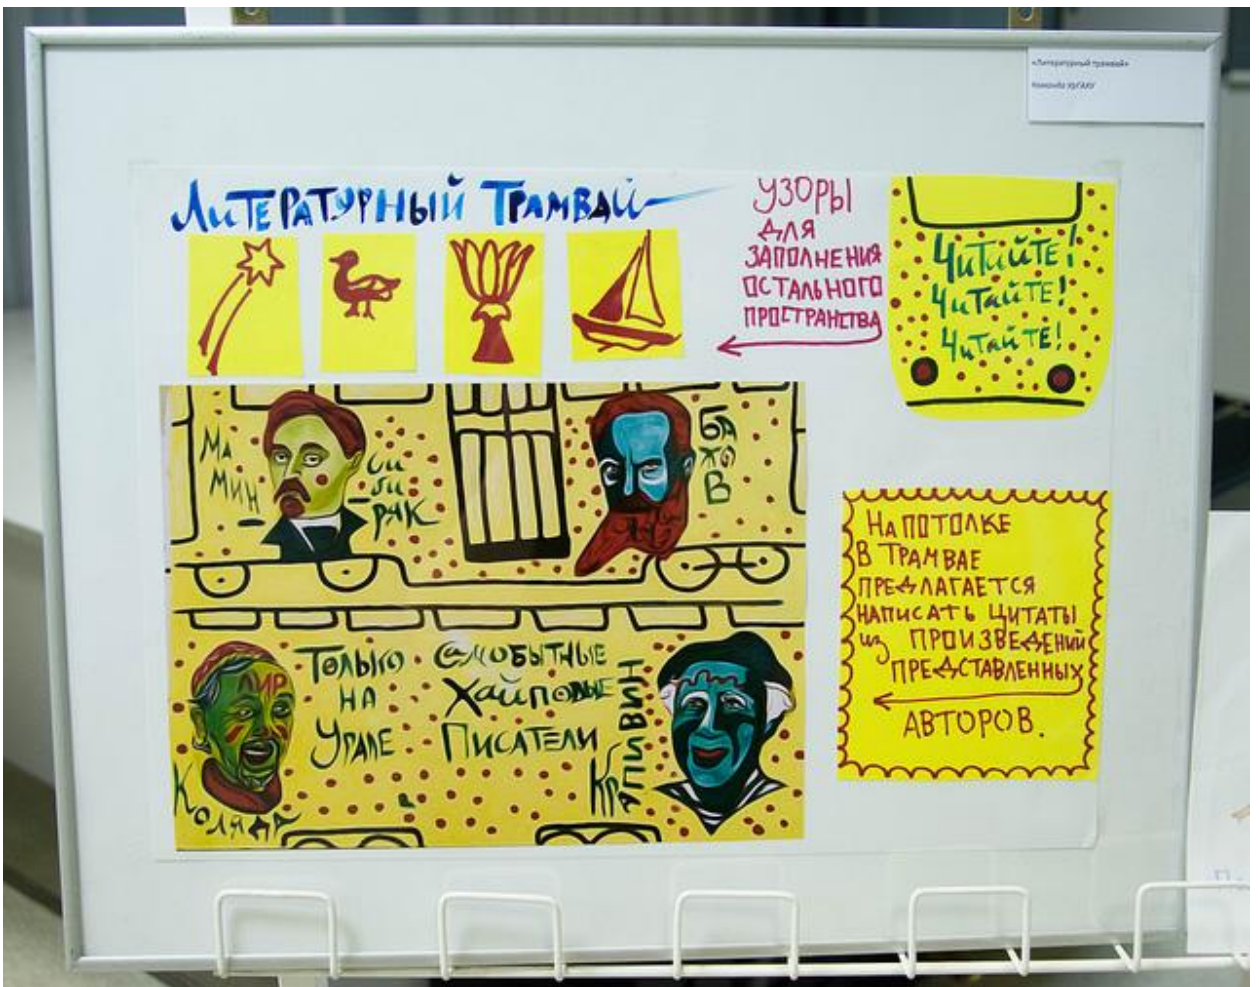 «Литературный трамвай»
Команда УрГАХУ
ЛИТЕРАТУРНЫЙ ТРАМВАЙ
УЗОРЫ
ДЛЯ
ЗАПОЛНЕНИЯ
ОСТАЛЬНОГО
ПРОСТРАНСТВА
Читайте!
Читайте!
Читайте!
МА
МИН-
СИ
БИ
РЯК
БА
ЖО
В
НА ПОТОЛКЕ
В ТРАМВАЕ
ПРЕДЛАГАЕТСЯ
НАПИСАТЬ ЦИТАТЫ
ИЗ ПРОИЗВЕДЕНИЙ
ПРЕДСТАВЛЕННЫХ
АВТОРОВ.
ЛИР
КОЛЯДА
ТОЛЬКО
НА
УРАЛЕ
САМОБЫТНЫЕ
ХАЙПОВЫЕ
ПИСАТЕЛИ
КРАПИВИН